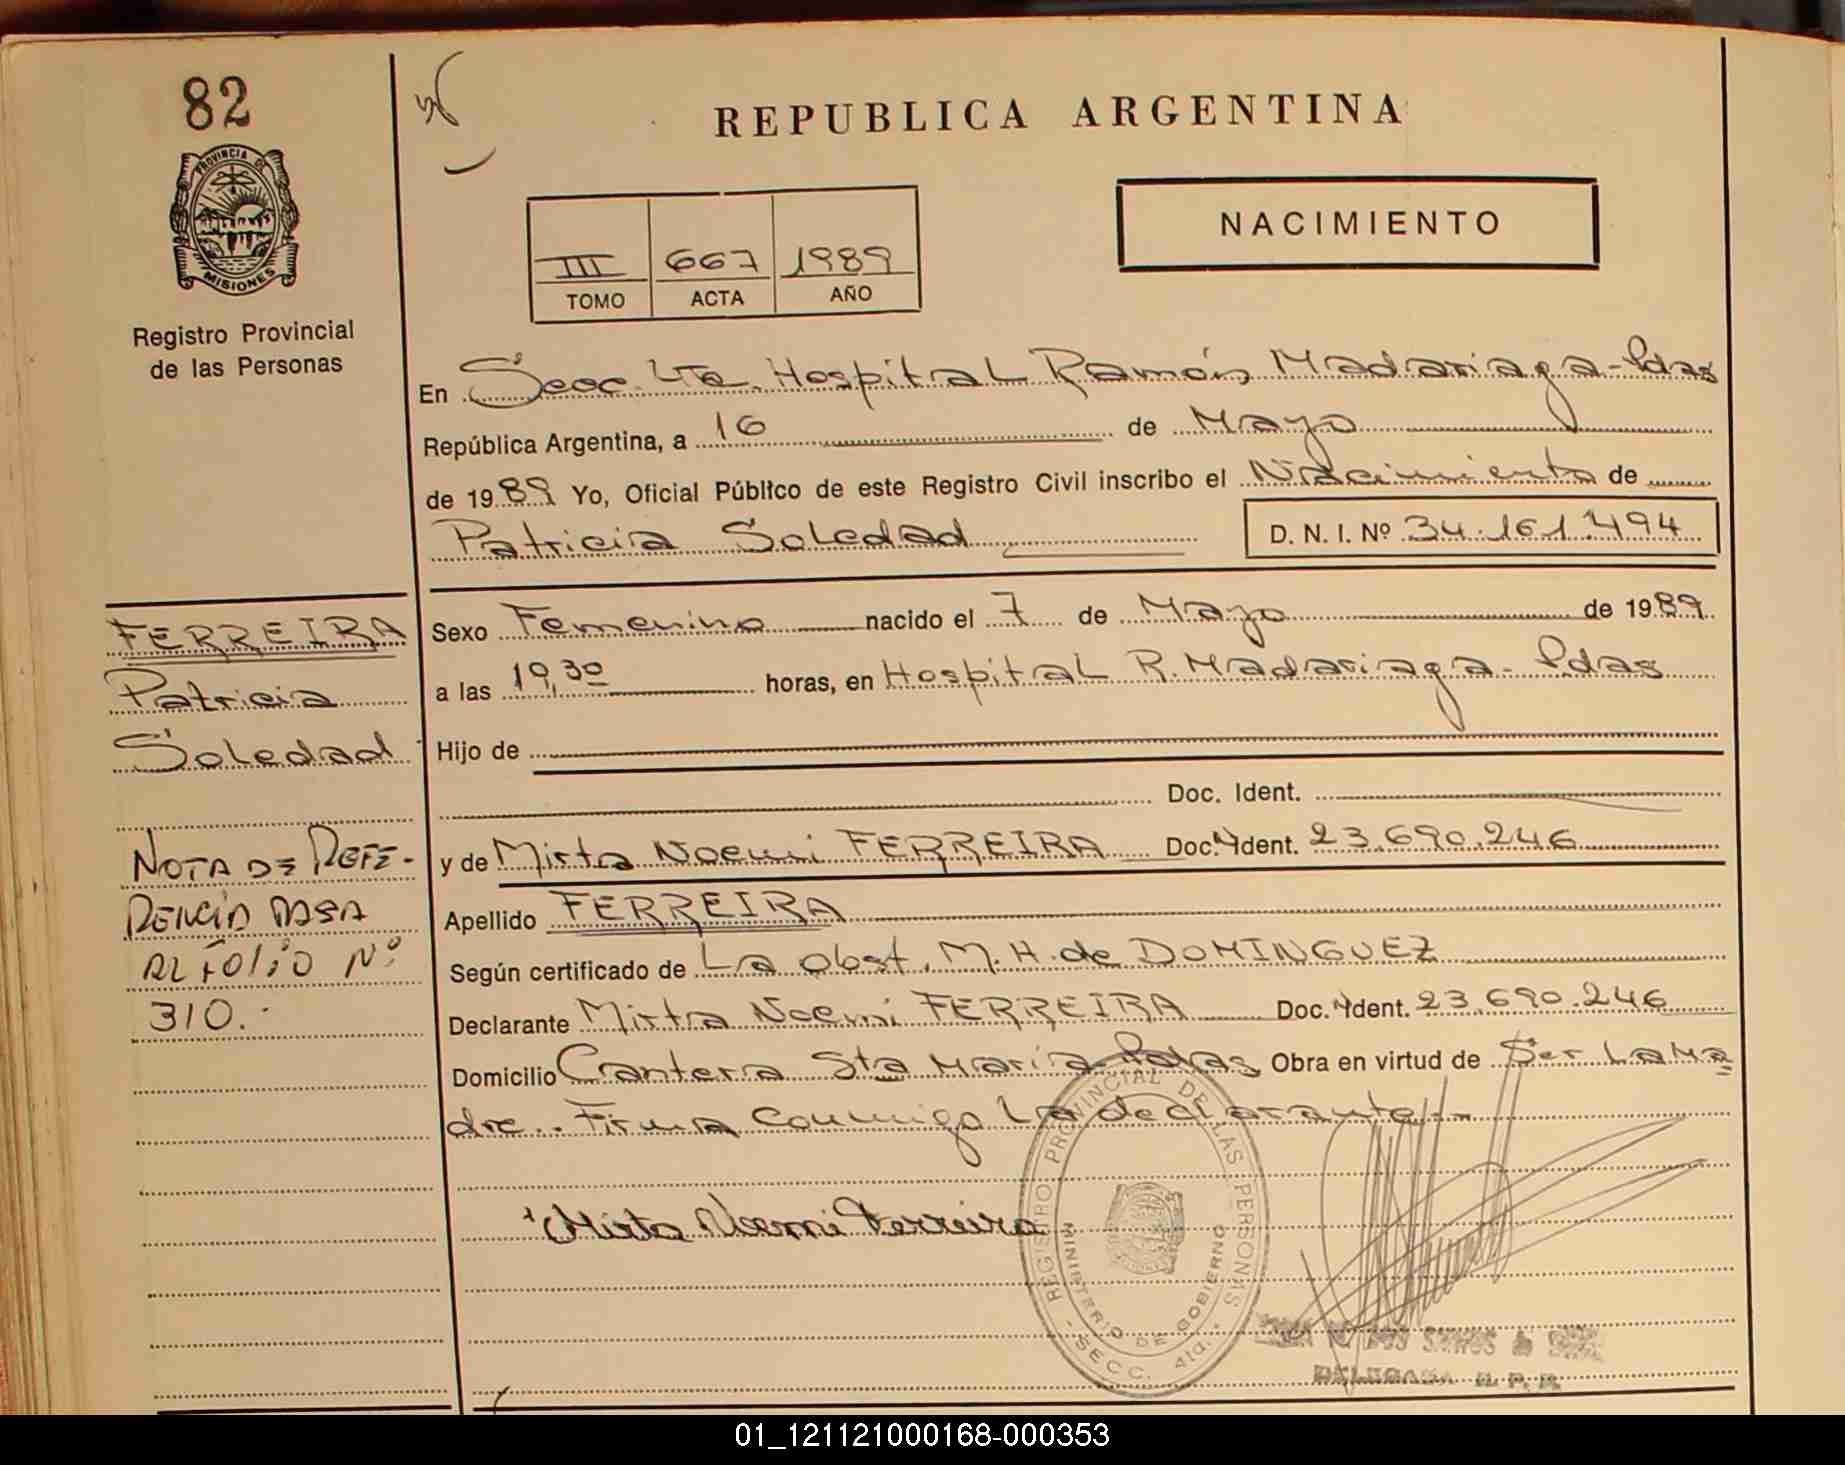 82
REPUBLICA ARGENTINA
PROVINCIA DE
MISIONES
NACIMIENTO
III 667 1989
TOMO ACTA AÑO
Registro Provincial
de las Personas
En Secc. 4ta. Hospital Ramón Madariaga - Pdas
República Argentina, a 16 de Mayo
de 1989 Yo, Oficial Público de este Registro Civil inscribo el Nacimiento de
Patricia Soledad D. N. I. Nº 34.161.494
FERREIRA
Patricia
Soledad
NOTA DE REFE-
RENCIA PASA
AL FOLIO Nº
310.-
Sexo Femenino nacido el 7 de Mayo de 1989
a las 19,30 horas, en Hospital R. Madariaga - Pdas
Hijo de
Doc. Ident.
y de Mirta Noemi FERREIRA Doc. Ident. 23.690.246
Apellido FERREIRA
Según certificado de La obst. M. H. de DOMINGUEZ
Declarante Mirta Noemi FERREIRA Doc. Ident. 23.690.246
Domicilio Cantera Sta Maria Pdas Obra en virtud de Ser La Ma
dre.. Firma conmigo La declarante.-
Mirta Noemi Ferreira
REGISTRO PROVINCIAL DE LAS PERSONAS
MINISTERIO DE GOBIERNO
- SECC. 4ta. -
DOS SANTOS
DELEGADA R. P. P.
01_121121000168-000353